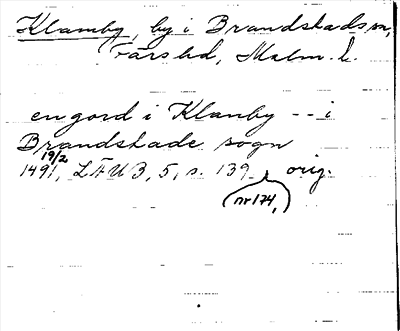 Klamby, by i Brandstads sn,
Färs hd, Malm. l.
en gord i Klanby -- i
Brandstade sogn
19/2
1491, LÄUB, 5, s. 139, orig.
(nr 174,)